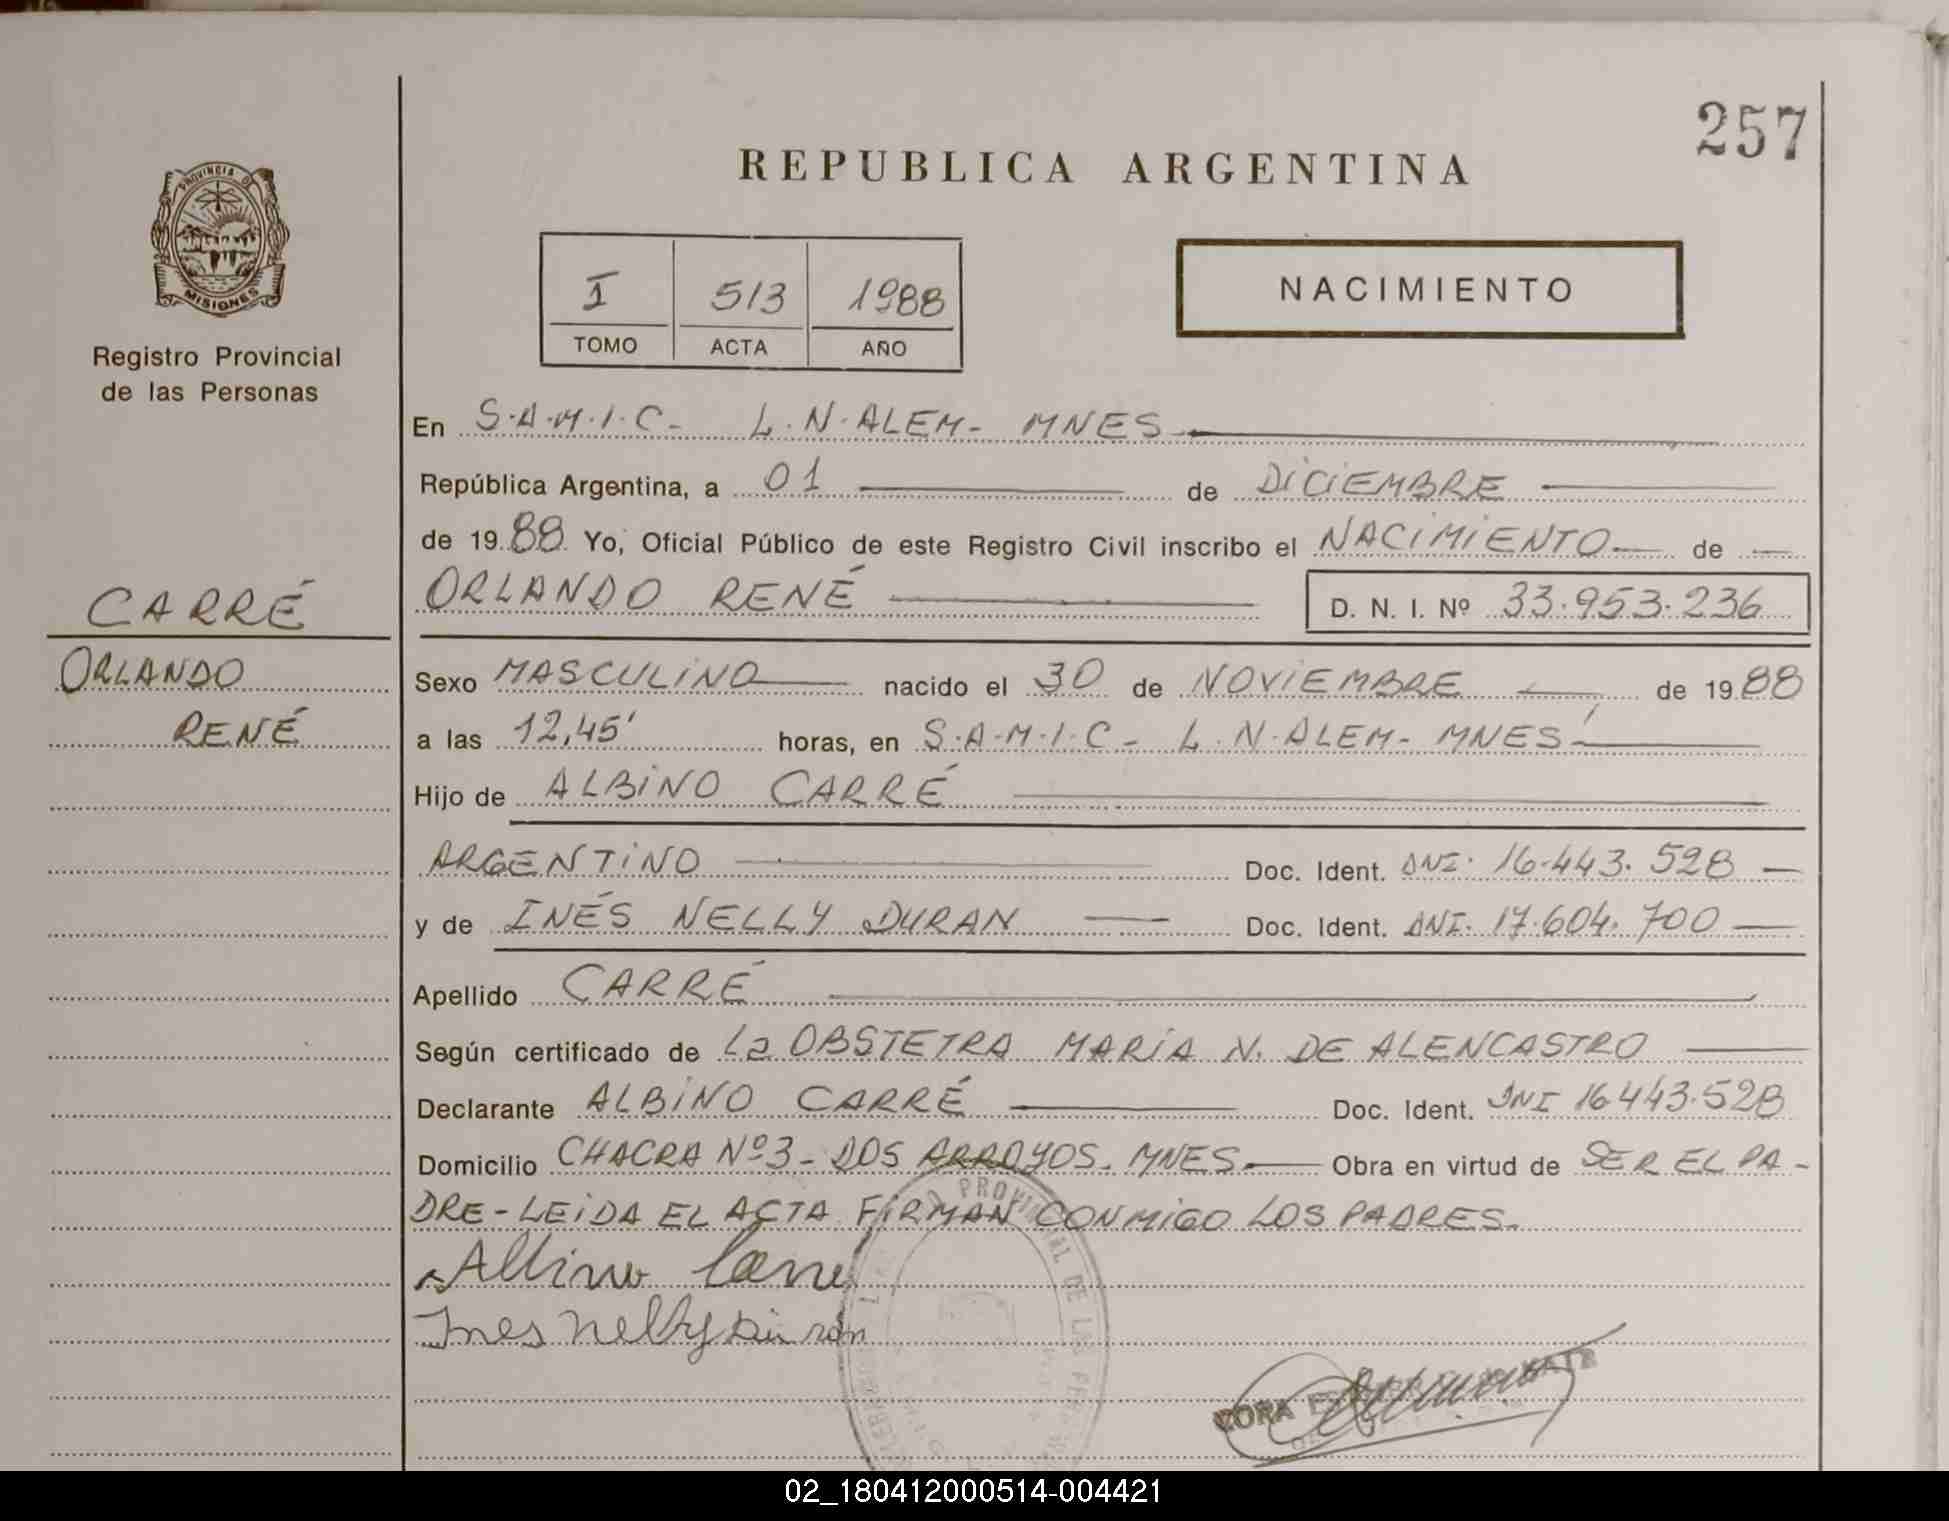 257
REPUBLICA ARGENTINA
PROVINCIA DE
MISIONES
Registro Provincial
de las Personas
I 513 1988
TOMO ACTA AÑO
NACIMIENTO
En S.A.M.I.C- L.N.ALEM- MNES
República Argentina, a 01 de DICIEMBRE
de 1988 Yo, Oficial Público de este Registro Civil inscribo el NACIMIENTO de
ORLANDO RENÉ D. N. I. Nº 33.953.236
CARRÉ
ORLANDO
RENÉ
Sexo MASCULINO nacido el 30 de NOVIEMBRE de 1988
a las 12,45' horas, en S.A.M.I.C- L.N.ALEM- MNES
Hijo de ALBINO CARRÉ
ARGENTINO Doc. Ident. DNI. 16.443.528
y de INÉS NELLY DURAN Doc. Ident. DNI. 17.604.700
Apellido CARRÉ
Según certificado de La OBSTETRA MARÍA N. DE ALENCASTRO
Declarante ALBINO CARRÉ Doc. Ident. DNI 16443.528
Domicilio CHACRA Nº3- DOS ARROYOS. MNES. Obra en virtud de SER EL PA-
DRE-LEIDA EL ACTA FIRMAN CONMIGO LOS PADRES.
Albino Carré
Ines Nelly Durán
PROVINCIAL DE LAS
CORA
02_180412000514-004421